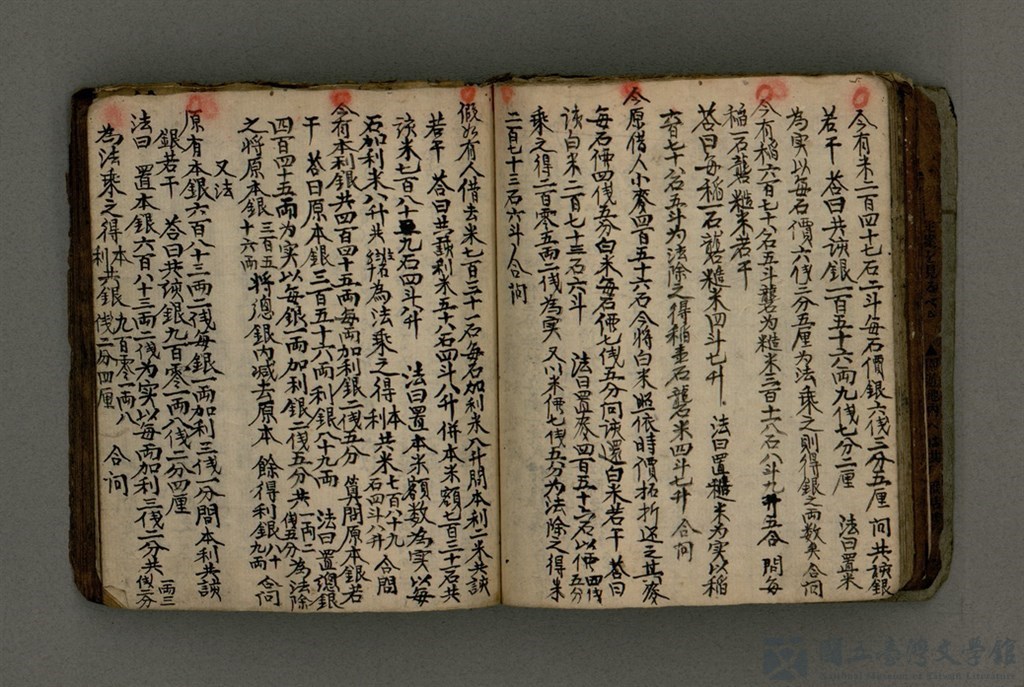 今有米二百四十七石二斗每石價銀六戋三分五厘 问共該銀
若干 答曰共該銀一百五十六両九戋七分二厘 法曰置米
為实以每石價六戋三分五厘为法乘之則得銀之両数矣合问
今有稻六百七十八石五斗礱為糙米三百十八石八斗九升五合 問每
稻一石礱糙米若干
答曰每稻一石礱糙米四斗七升 法曰置糙米为实以稻
六百七十八石五斗为法除之得稻壹石礱米四斗七升 合问
今原借人小麥四百五十六石今將白米照依時價拓折还之其麥
每石佛四戋五分白米每石佛七戋五分问該还白米若干 答曰
該白米二百七十三石六斗 法曰置麥四百五十六石以佛四戋五分
乘之得二百零五両二戋為实 又以米佛七戋五分为法除之得米
二百七十三石六斗 合问
假如有人借去米七百三十一石每石加利米八升問本利二米共該
若干 答曰共該利米五十八石四斗八升併本米額七百三十一石共
該米七百八十九石四斗八升 法曰置本米額数為实以每
石加利米八升共 為法乘之得本利共米七百八十九石四斗八升 合問
今有本利銀共四百四十五両每両加利銀二戋五分 算問原本銀若
干 答曰原本銀三百五十六両利銀八十九両 法曰置總銀
四百四十五両为实以每銀一両加利銀二戋五分共一両二戋五分為法除
之將原本銀三百五十六両將總銀内减去原本 餘得利銀八十九両 合问
又法
原有本銀六百八十三両二戋每銀一両加利三戋二分問本利共該
銀若干 答曰共該銀九百零一両八戋二分四厘
法曰 置本銀六百八十三両二戋为实以每両加利三戋二分共一両三戋二分
為法乘之得本利共銀九百零一両八戋二分四厘 合问
國立臺灣文學館
National Museum of Taiwan Literature